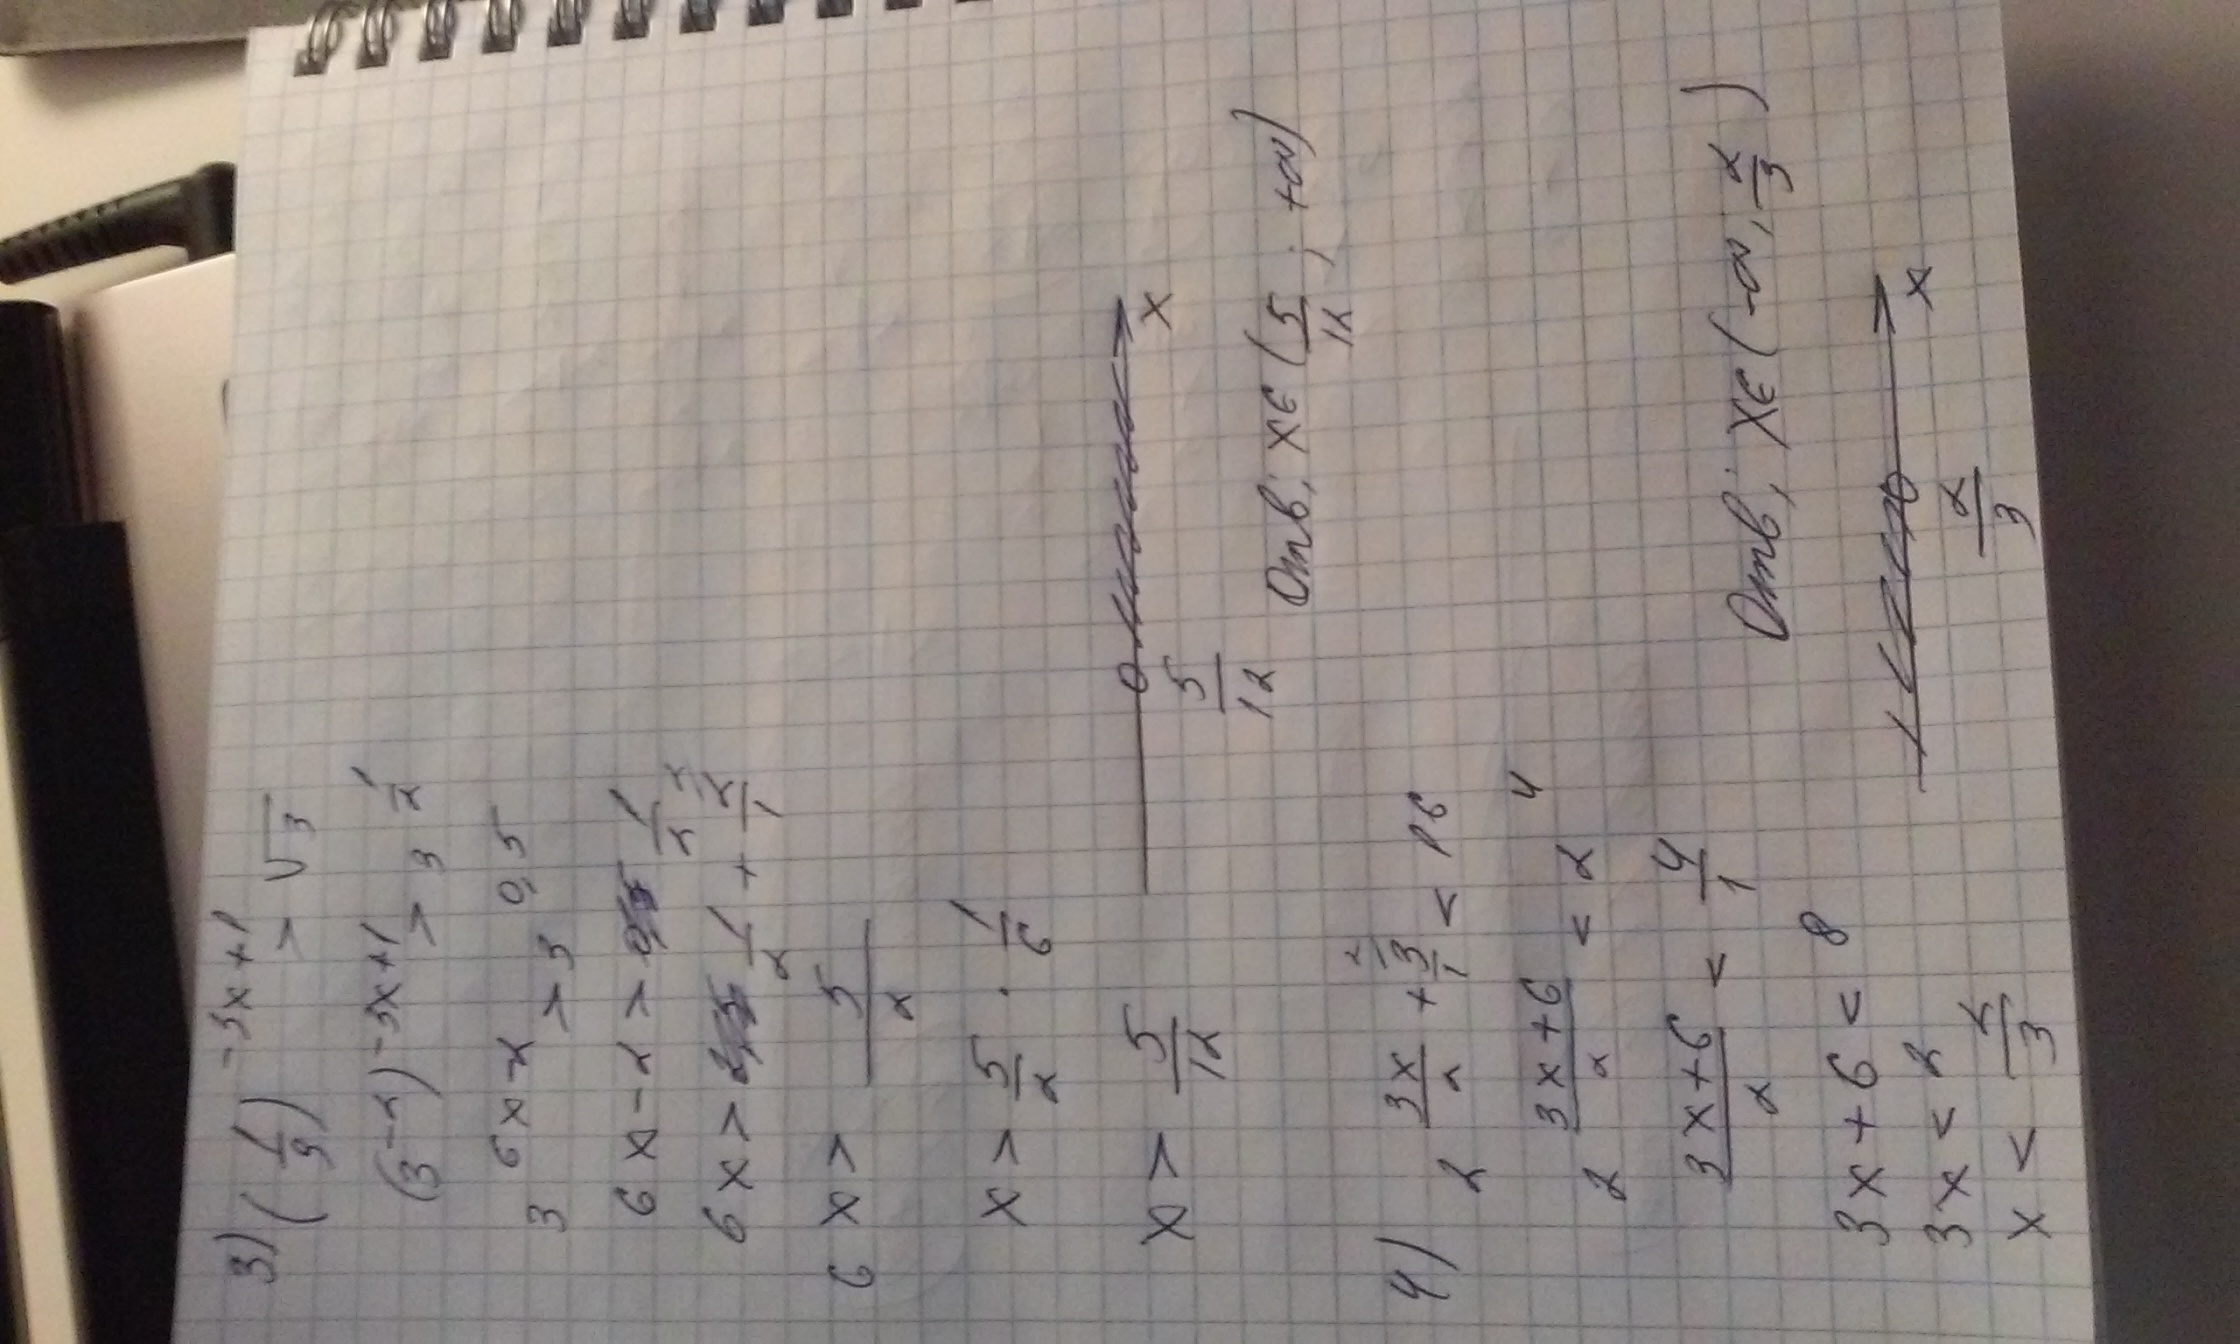 3) (1/9)^(-3x+1) > √3
(3^(-2))^(-3x+1) > 3^(1/2)
3^(6x-2) > 3^(0,5)
6x-2 > 1/2
6x > 1/2 + 2/1
6x > 5/2
x > 5/2 · 1/6
x > 5/12
5/12 x
Отв; x∈(5/12; +∞)
4) 2^(3x/2 + 3/1) < 16
2^((3x+6)/2) < 2^4
(3x+6)/2 < 4/1
3x+6 < 8
3x < 2
x < 2/3
Отв; x∈(-∞, 2/3)
2/3 x